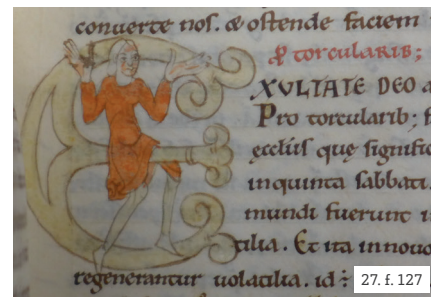 conuerte nos. & ostende faciem
torcularib;
XVLTATE DEO
Pro torcularib; f
ęccliis quę signific
inquinta sabbati.
mundi fuerunt i
tilia. Et ita innouo
regenerantur uolatilia. id÷
27. f. 127